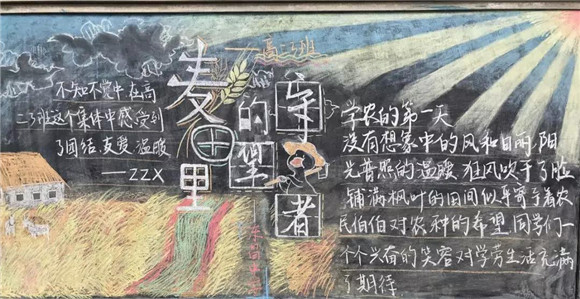 麦田里
的守望者
不知不觉中在高
二3班这个集体中感受到
了团结 友爱 温暖
——ZZX
学农的第一天
没有想象中的风和日丽，阳
光普照的温暖 狂风吹干了脸
铺满枫叶的田间似乎寄予着农
民伯伯对农种的希望，同学们一
个个兴奋的笑容对学劳生活充满
了期待